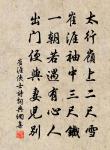 太行嶺上二尺雪
崔涯袖中三尺鐵
一朝若遇有心人
出門便與妻兒別
崔涯俠士詩